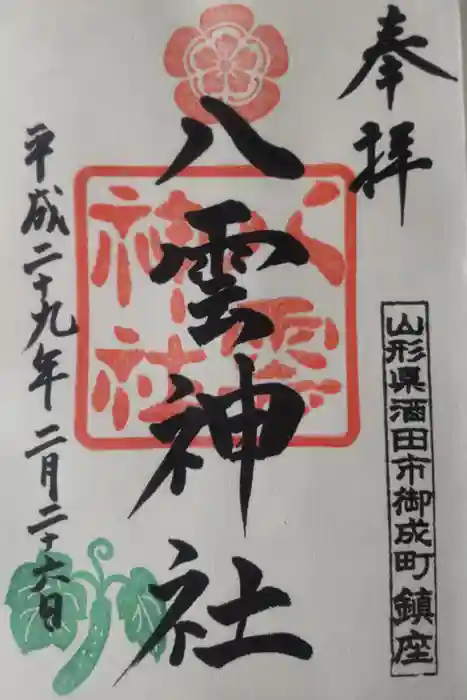 奉拝
山形県酒田市御成町鎮座
八雲神社
八雲
神社
平成二十九年二月二十六日